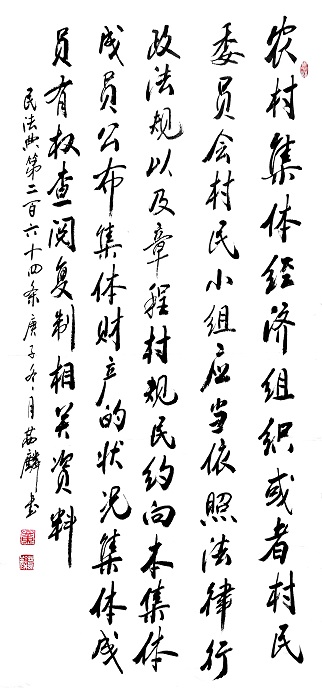 农村集体经济组织或者村民
委员会村民小组应当依照法律行
政法规以及章程村规民约向本集体
成员公布集体财产的状况集体成
员有权查阅复制相关资料
民法典第二百六十四条庚子冬月 麟书